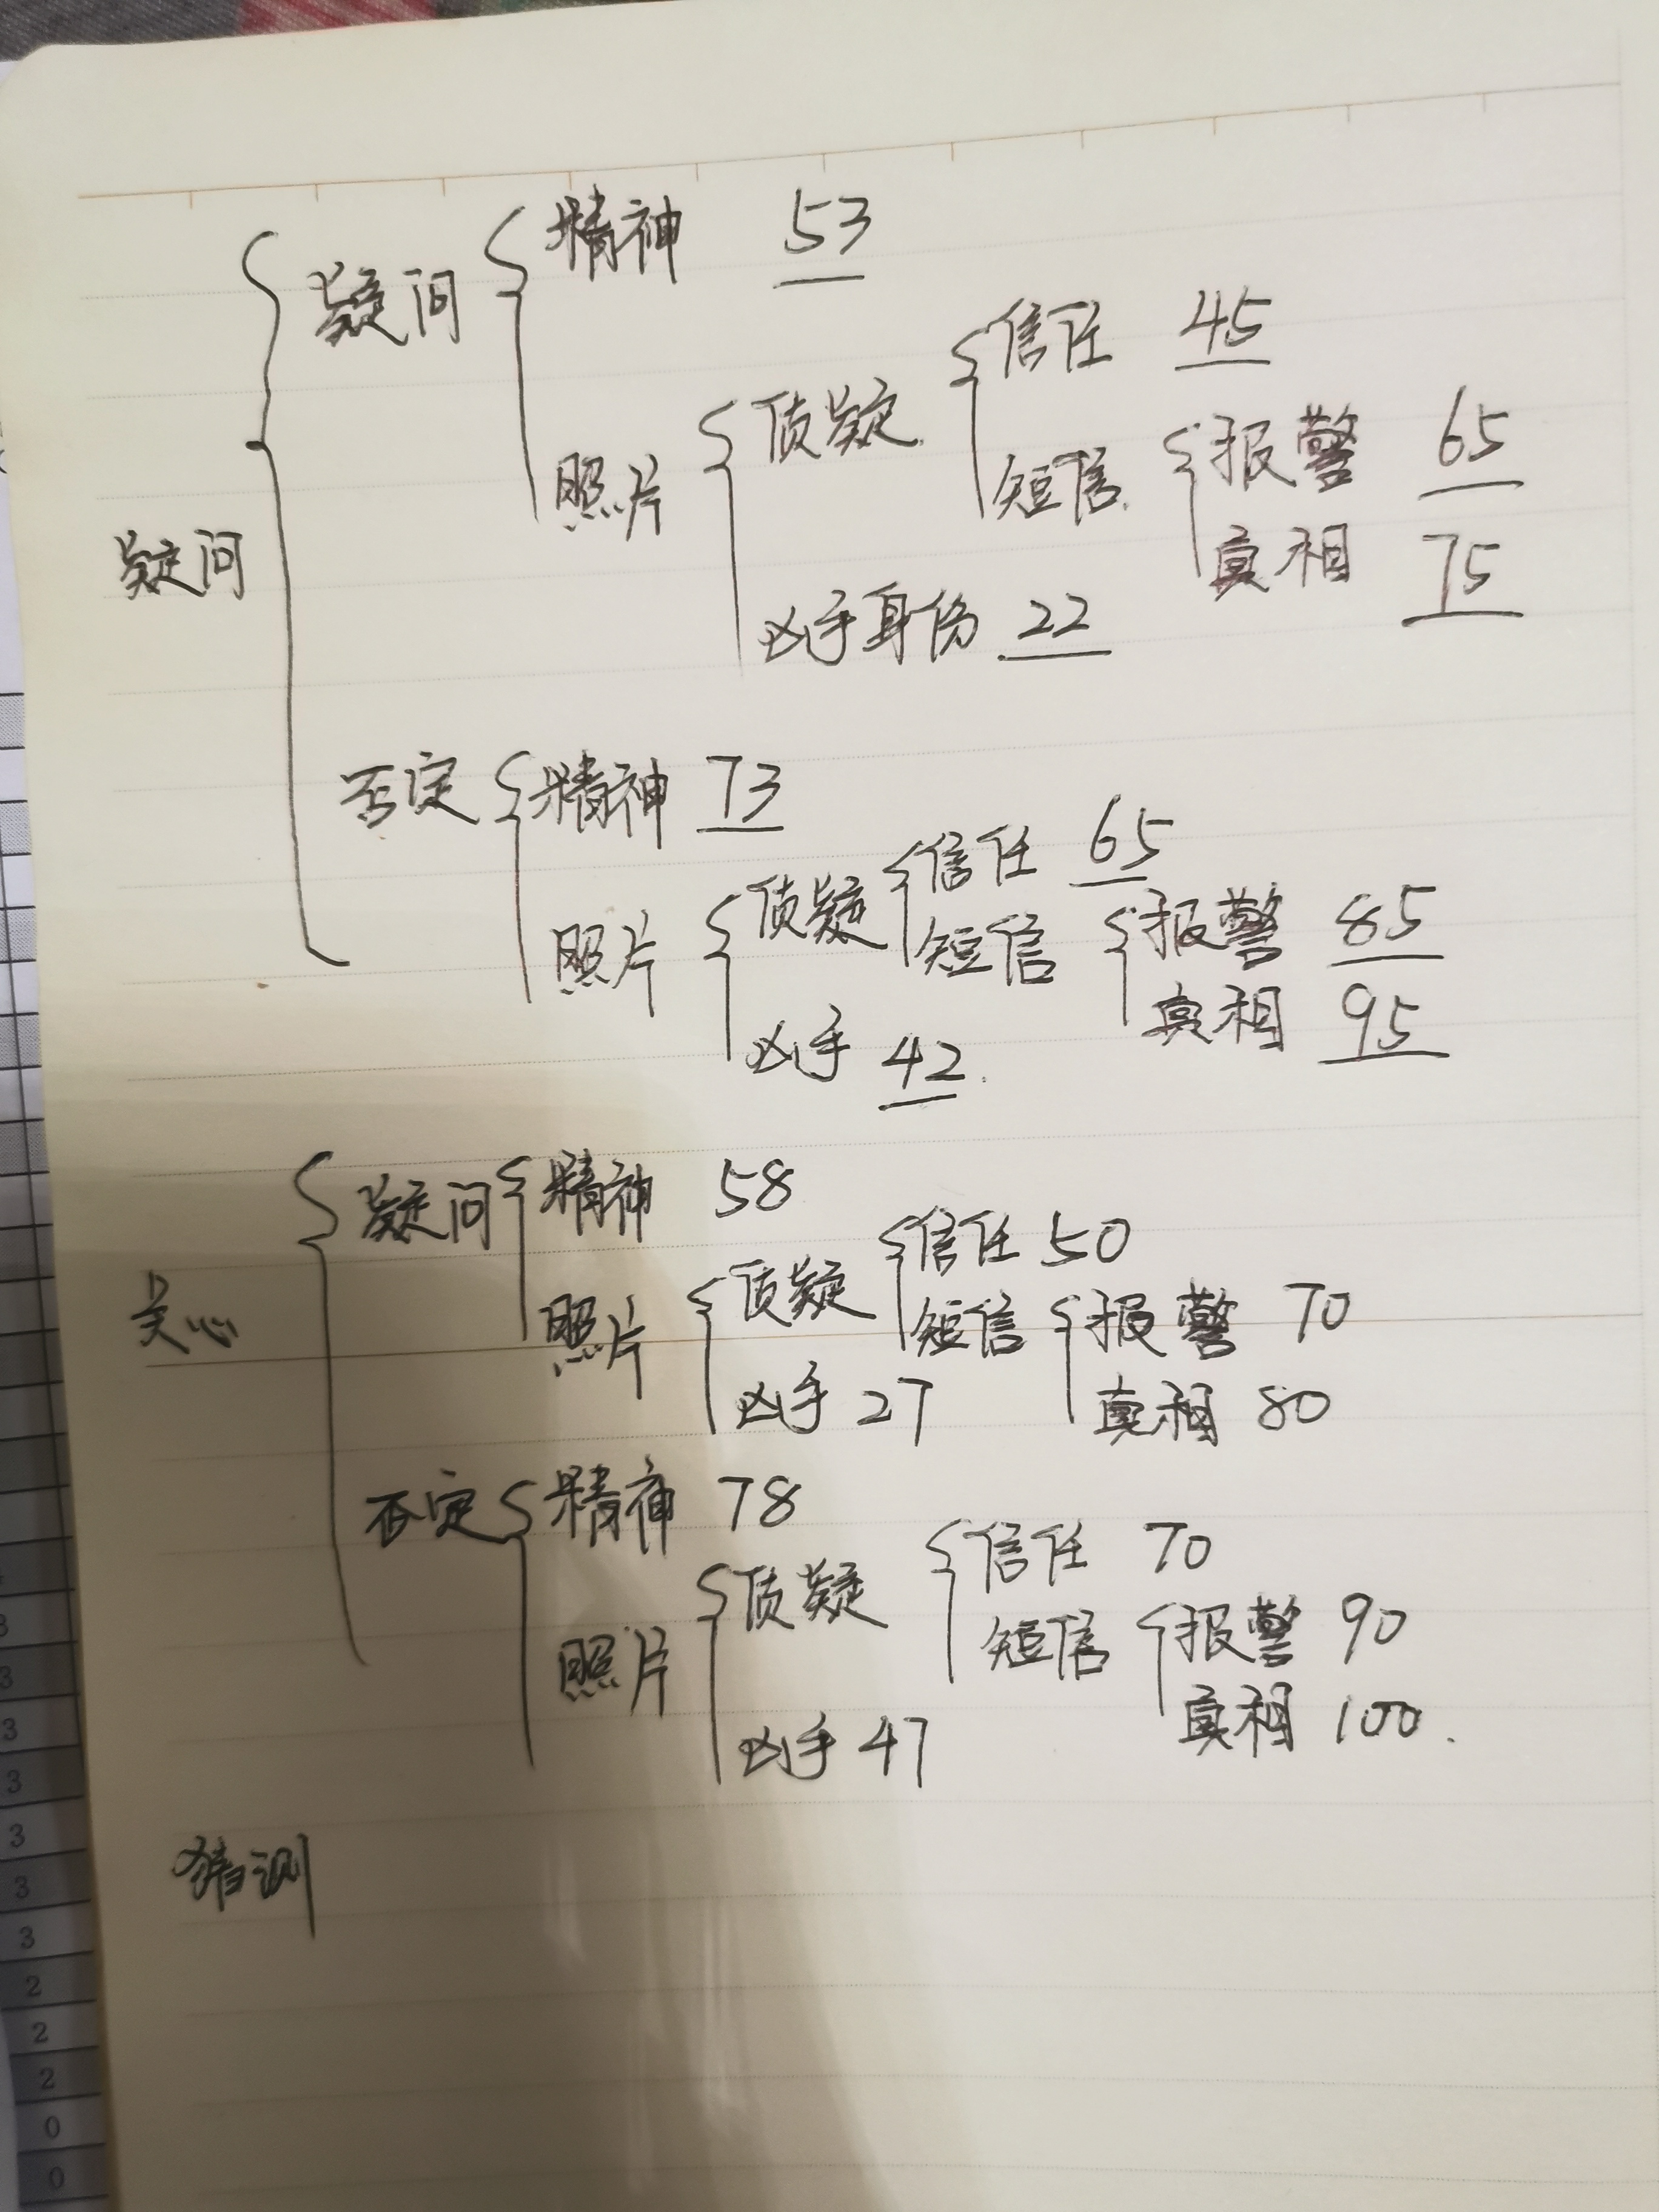 疑问 精神 53
信任 45
侦疑 报警 65
照片 短信 真相 75
疑问
凶手身份 22
否定 精神 73
信任 65
侦疑 报警 85
照片 短信 真相 95
凶手 42
疑问 精神 58
信任 50
侦疑 报警 70
关心 照片 短信 真相 80
凶手 27
否定 精神 78
信任 70
侦疑 报警 90
照片 短信 真相 100
凶手 47
猜测
3
3
3
3
3
3
3
2
2
2
0
0